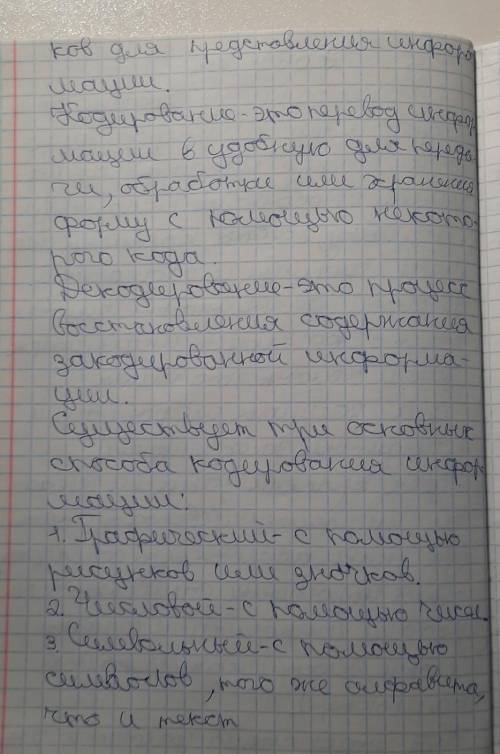 ков для представления инфор
мации.
Кодирование-это перевод инфор
мации в удобную для переда
чи, обработки или хранения
форму с помощью некото-
рого кода.
Декодирование-это процесс
восстановления содержания
закодированной информа-
ции.
Существует три основных
способа кодирования инфор
мации:
1. Графический-с помощью
рисунков или значков.
2. Числовой-с помощью чисел.
3. Символьный-с помощью
символов, того же алфавита,
что и текст